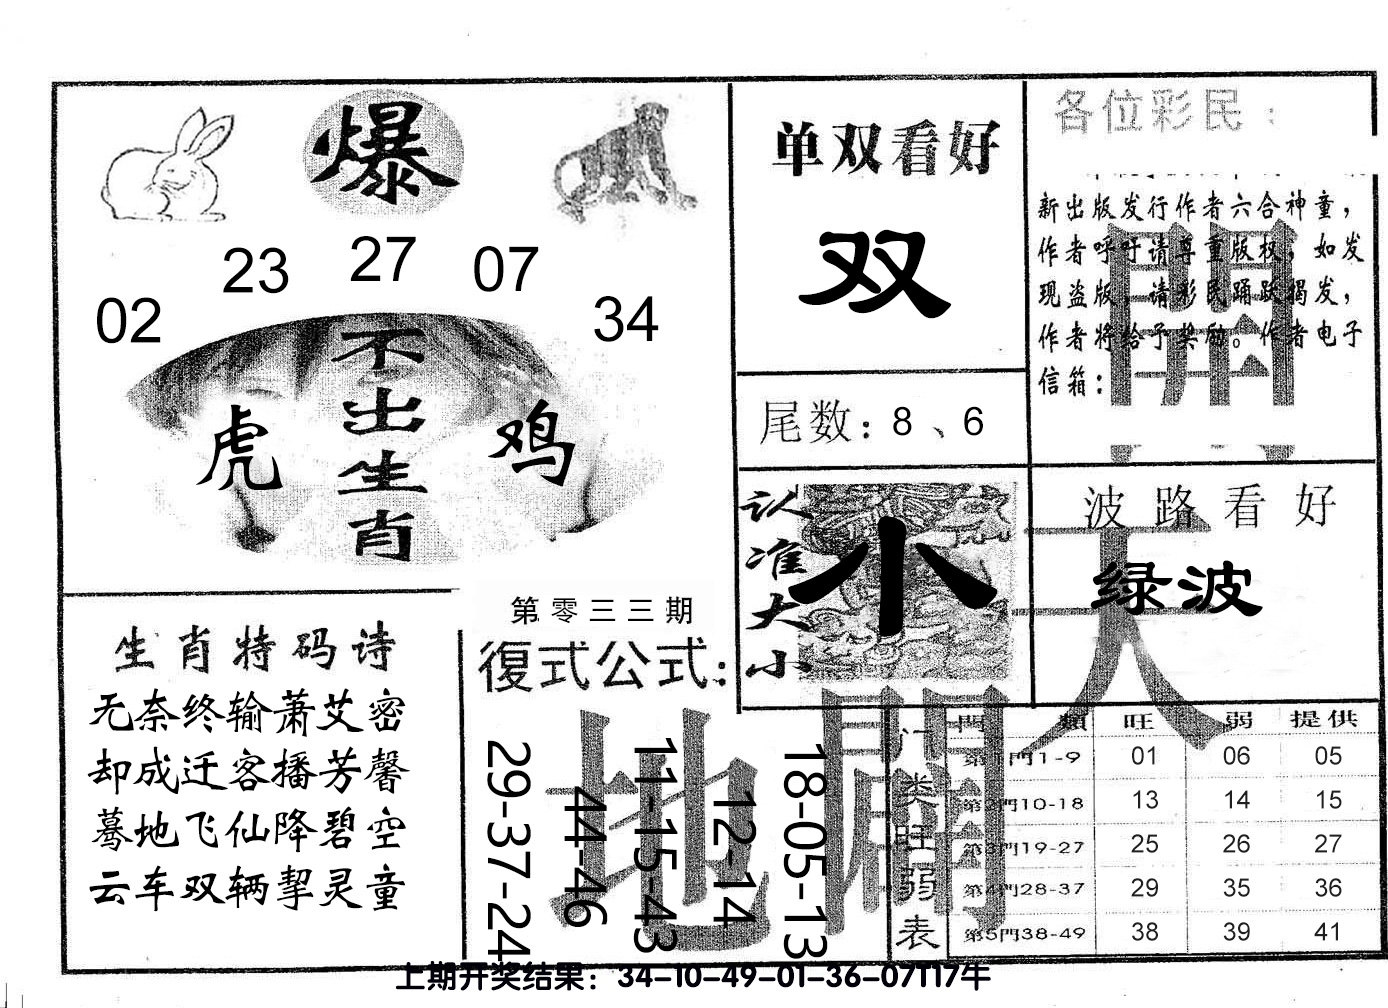 爆
23 27 07
02 34
不出生肖
虎 鸡
单双看好
双
尾数：8、6
各位彩民：
新出版发行作者六合神童，
作者呼吁请尊重版权，如发
现盗版，请彩民踊跃揭发，
作者将给予奖励。作者电子
信箱：
認准大小
小
波路看好
绿波
天
開
生肖特码诗
无奈终输萧艾密
却成迁客播芳馨
蓦地飞仙降碧空
云车双辆挈灵童
第零三三期
復式公式：
29-37-24
44-46
11-15-43
12-14
18-05-13
地
開
门类旺弱表
門類 旺 弱 提供
第1門1-9 01 06 05
第2門10-18 13 14 15
第3門19-27 25 26 27
第4門28-37 29 35 36
第5門38-49 38 39 41
上期开奖结果：34-10-49-01-36-07T17牛